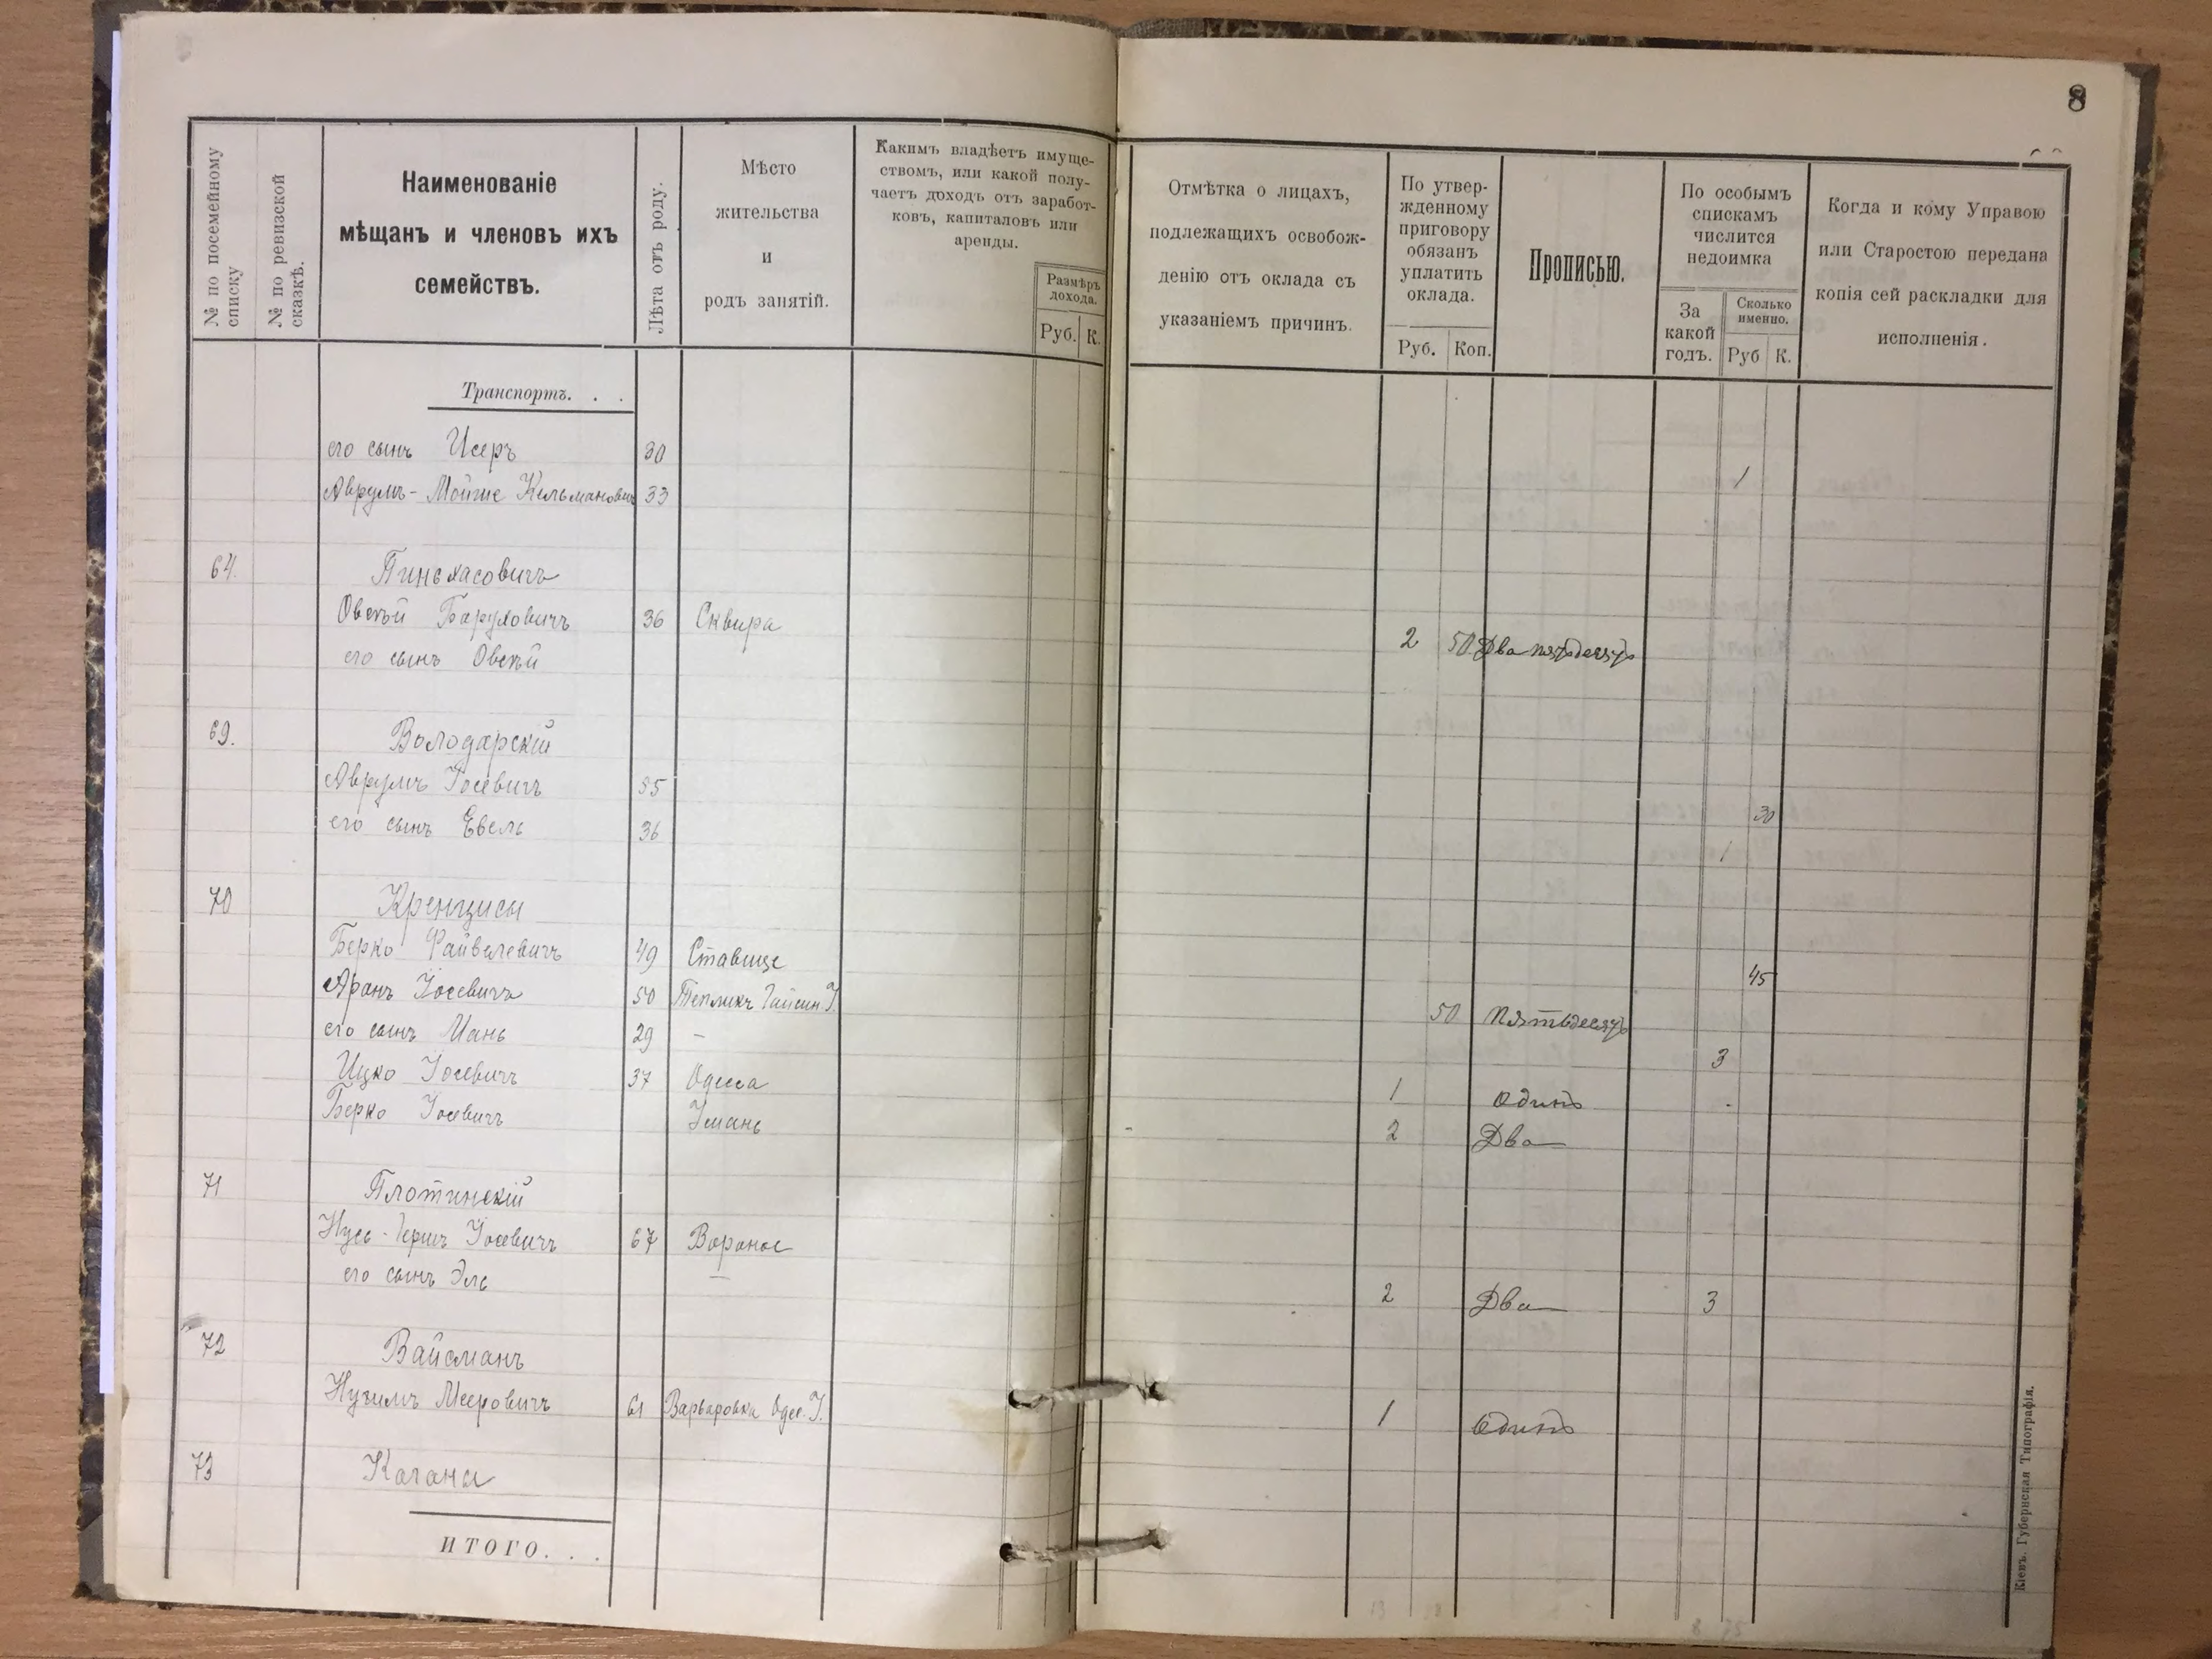 8
№ по посемейному списку
№ по ревизской сказкѣ.
Наименованіе
мѣщанъ и членовъ ихъ
семействъ.
Лѣта отъ роду.
Мѣсто
жительства
и
родъ занятій.
Какимъ владѣетъ имуще-
ствомъ, или какой полу-
чаетъ доходъ отъ заработ-
ковъ, капиталовъ или
аренды.
Размѣръ
дохода.
Руб. К.
Отмѣтка о лицахъ,
подлежащихъ освобож-
денію отъ оклада съ
указаніемъ причинъ.
По утвер-
жденному
приговору
обязанъ
уплатить
оклада.
Руб. Коп.
Прописью.
По особымъ
спискамъ
числится
недоимка
За
какой
годъ.
Сколько
именно.
Руб К.
Когда и кому Управою
или Старостою передана
копія сей раскладки для
исполненія.
Транспортъ. . .
его сынъ Исеръ 30
Аврумъ-Мойше Кельмановичъ 33 1
64. Пиньхасовичъ
Овсѣй Баруховичъ 36 Сквира
его сынъ Овсѣй 2 50 Два пятьдесятъ
69. Володарскій
Аврумъ Іосевичъ 55 30
его сынъ Евель 36 1
70 Кренцисы
Берко Файвелевичъ 49 Ставище 45
Аронъ Іосевичъ 50 Тепликъ Гайсин. У. 50 пятьдесятъ
его сынъ Мань 29 – 3
Ицко Іосевичъ 37 Одесса 1 Одинъ
Берко Іосевичъ Умань 2 Два
71 Плотинскій
Нусь-Гершъ Іосевичъ 67 Вороное
его сынъ Эль – 2 Два 3
72 Вайсманъ
Нухимъ Мееровичъ 61 Варваровка Одес. У. 1 Одинъ
73 Каганы
ИТОГО. . .
8 75
Кіевъ. Губернская Типографія.